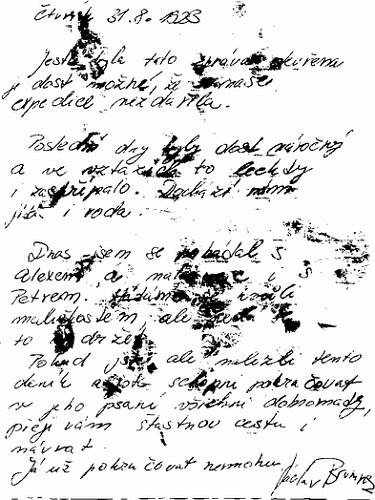 čtvrtek 31.8. 1923
Jestli byla tato zpráva otevřena
je dost možné, že se naše
expedice nezdařila.
Poslední dny byly dost náročný
a ve vztazích to leckdy
i zaskřípalo. Dochází nám
jídlo i voda.
Dnes jsem se pohádal s
Alexem a i s
Petrem. kvůli
maličkostem, ale
to
Pokud jste ale nalezli tento
deník a jste schopni pokračovat
v jeho psaní, všichni dohromady,
přeji vám šťastnou cestu i
návrat.
Já už pokračovat nemohu
Václav